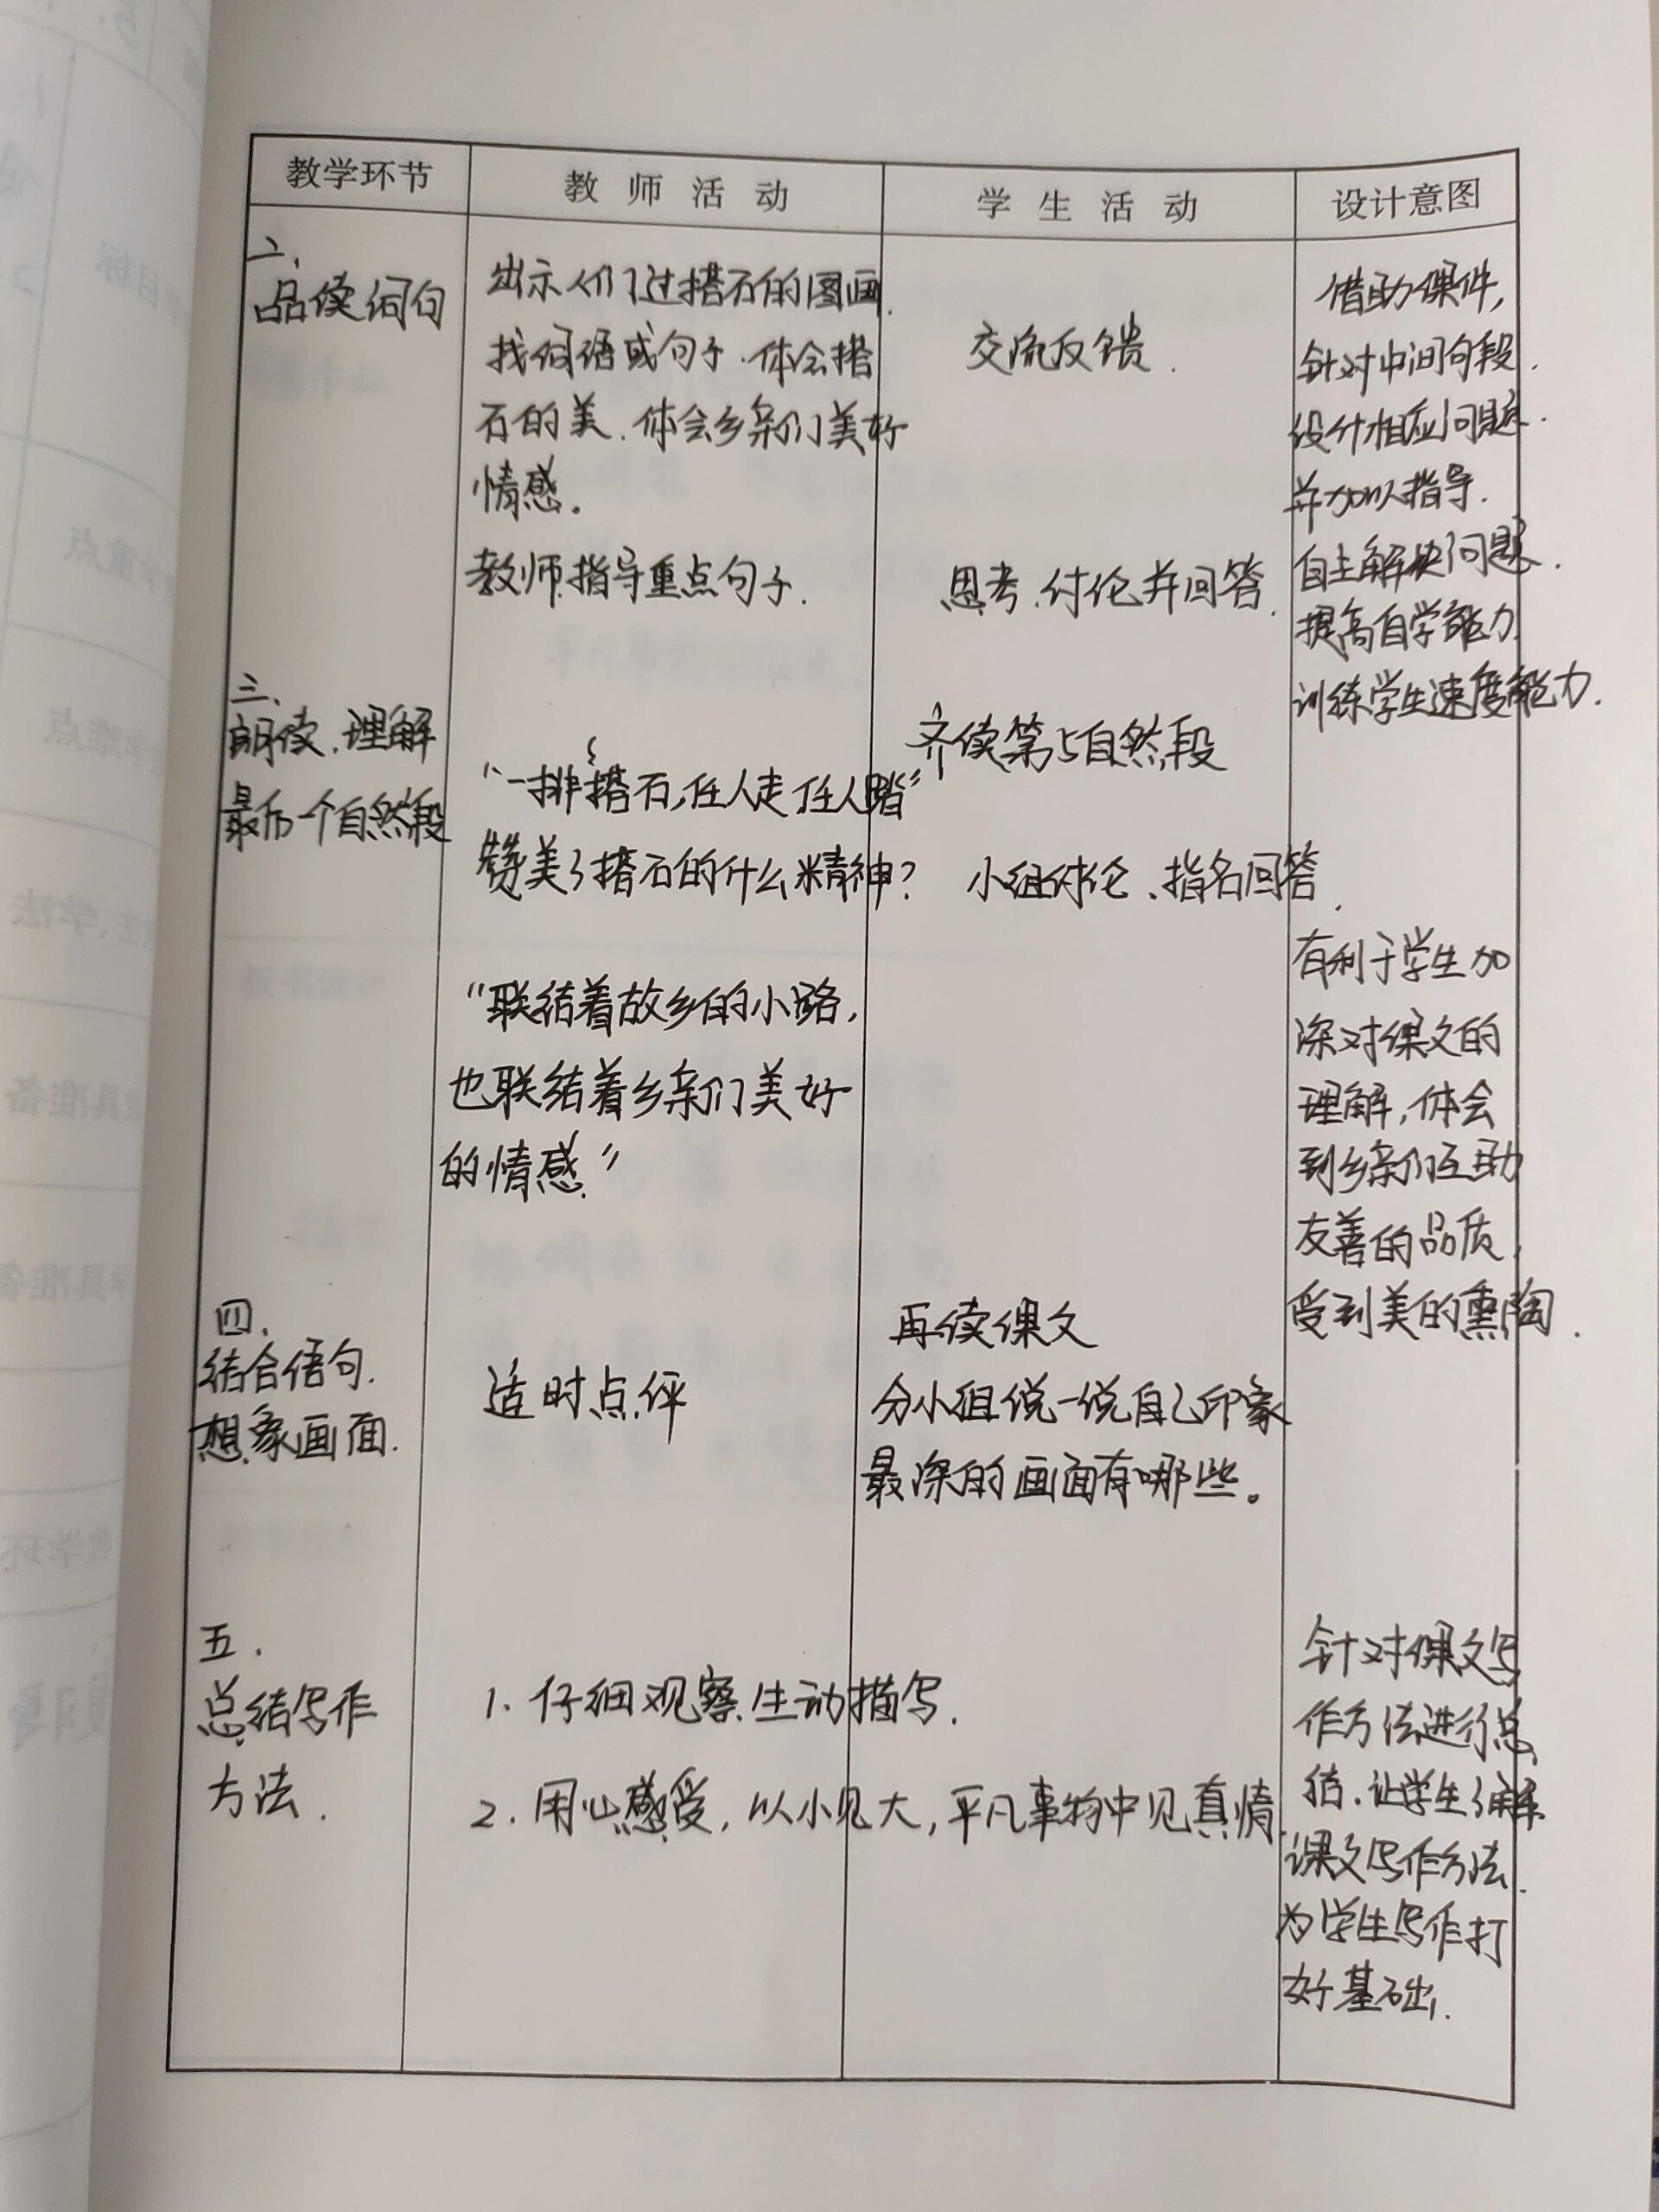 教学环节 教师活动 学生活动 设计意图
二、
品读词句
出示人们过搭石的图画.
找词语或句子.体会搭
石的美.体会乡亲们美好
情感。
教师指导重点句子.
交流反馈.
思考.讨论并回答.
借助课件,
针对中间句段.
设计相应问题.
并加以指导.
自主解决问题.
提高自学能力.
训练学生速度能力.
三、
朗读.理解
最后一个自然段
“一排排搭石,任人走,任人踏”
赞美了搭石的什么精神?
“联结着故乡的小路,
也联结着乡亲们美好
的情感.”
齐读第5自然段
小组讨论、指名回答.
有利于学生加
深对课文的
理解,体会
到乡亲们互助
友善的品质,
受到美的熏陶.
四、
结合语句.
想象画面.
适时点评
再读课文
分小组说一说自己印象
最深的画面有哪些。
五.
总结写作
方法.
1、仔细观察.生动描写.
2.用心感受,以小见大,平凡事物中见真情.
针对课文写
作方法进行总
结.让学生了解
课文写作方法.
为学生写作打
好基础.
教学目标
教学重点
教学难点
教法、学法
教具准备
学具准备
教学环